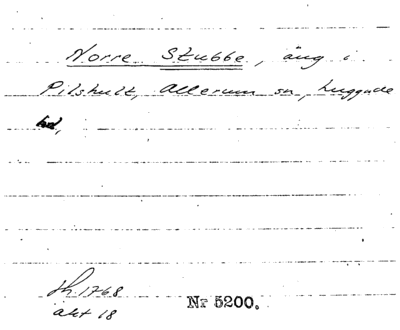 Norre Stubbe, äng i
Pilshult, Allerum sn, Luggude
hd,
Sh. 1768
akt 18
Nr 5200.